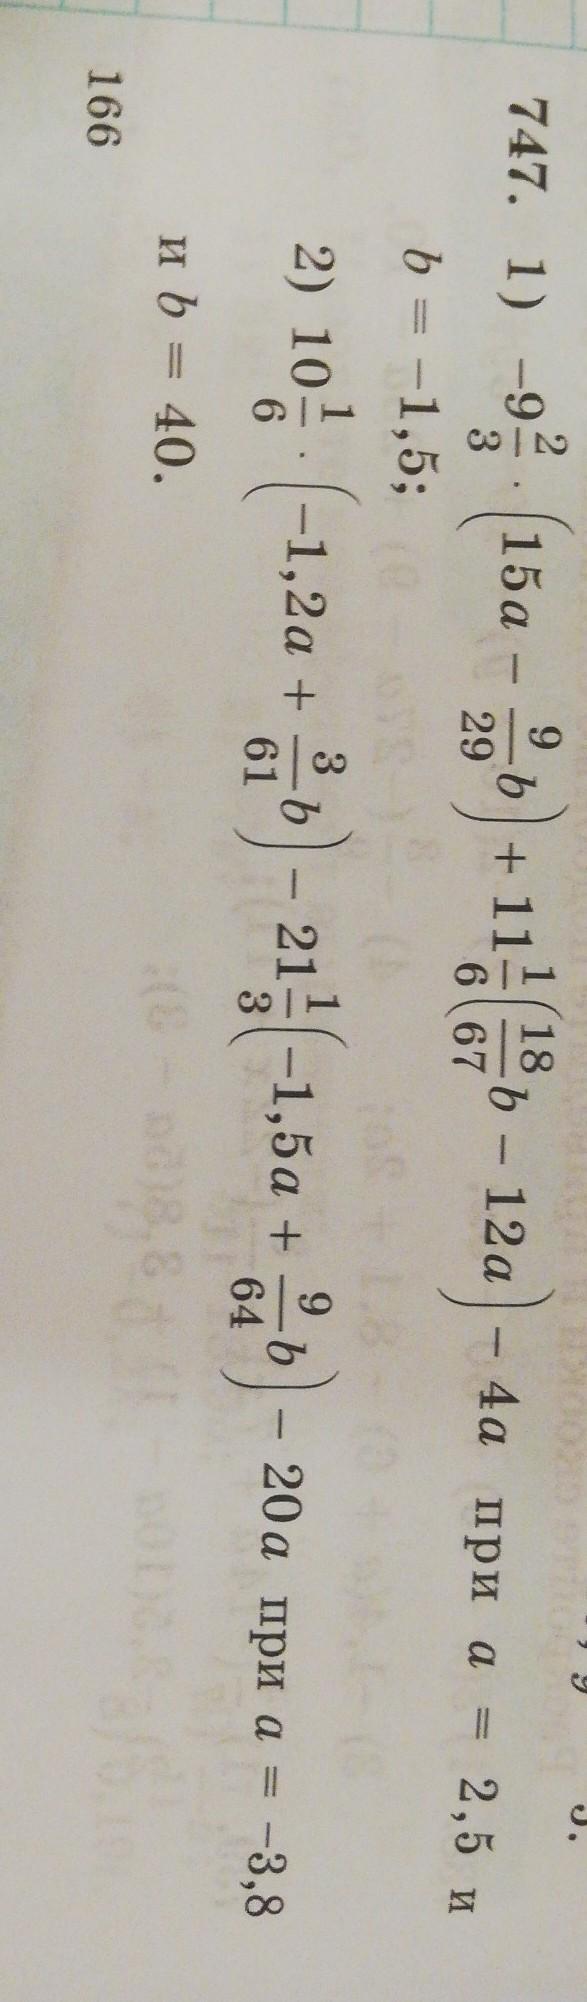 747. 1) −9 2/3 · (15a − 9/29 b) + 11 1/6 (18/67 b − 12a) − 4a при a = 2,5 и
b = −1,5;
2) 10 1/6 · (−1,2a + 3/61 b) − 21 1/3 (−1,5a + 9/64 b) − 20a при a = −3,8
и b = 40.
166